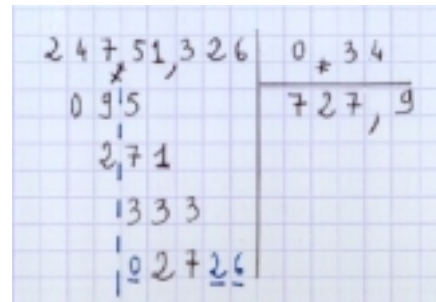 247,51,326 0,34
095 727,9
271
333
02726